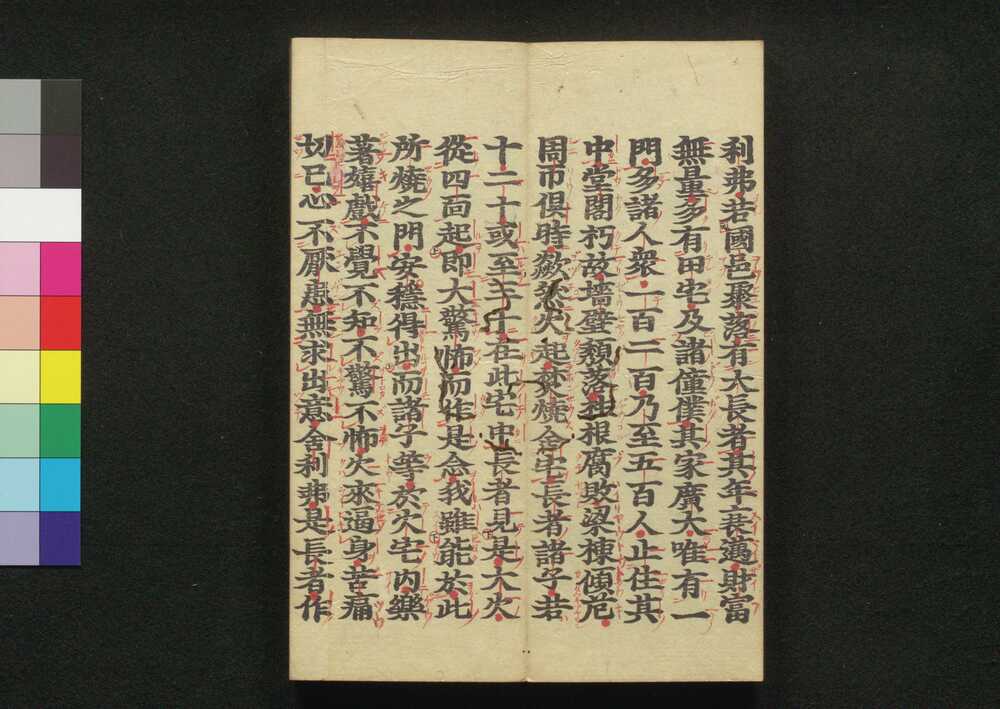 利弗若國邑聚落有大長者其年衰邁財富
無量多有田宅及諸僮僕其家廣大唯有一
門多諸人衆一百二百乃至五百人止住其
中堂閣朽故墻壁頽落柱根腐敗梁棟傾危
周帀俱時歘然火起焚燒舍宅長者諸子若
十二十或至三十在此宅中長者見是大火
從四面起即大驚怖而作是念我雖能於此
所燒之門安穩得出而諸子等於火宅内樂
著嬉戲不覺不知不驚不怖火來逼身苦痛
切已心不厭患無求出意舍利弗是長者作